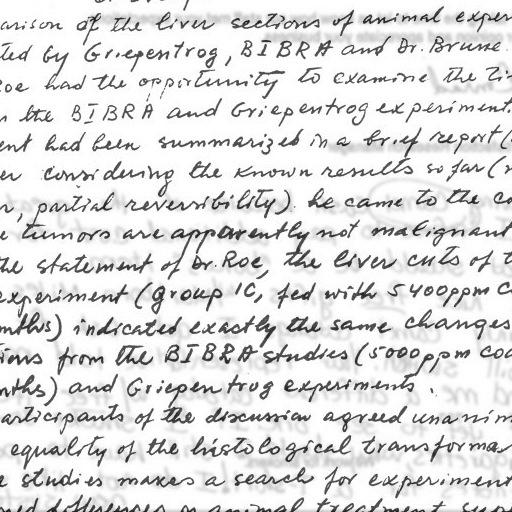 arison of the liver sections of animal exper
ted by Griepentrog, BIBRA and Dr. Brune.
oe had the opportunity to examine the
the BIBRA and Griepentrog experiment.
ent had been summarized in a brief report (
er considering the known results so far (
r, partial reversibility). he came to the co
e tumors are apparently not malignant
the statement of Dr. Roe, the liver cuts of t
experiment (group 1C, fed with 5400ppm C
nths) indicated exactly the same changes
ions from the BIBRA studies (5000ppm cou
nths) and Griepentrog experiments.
articipants of the discussion agreed unanim
equality of the histological transforma
e studies makes a search for experiment
differences in animal treatment